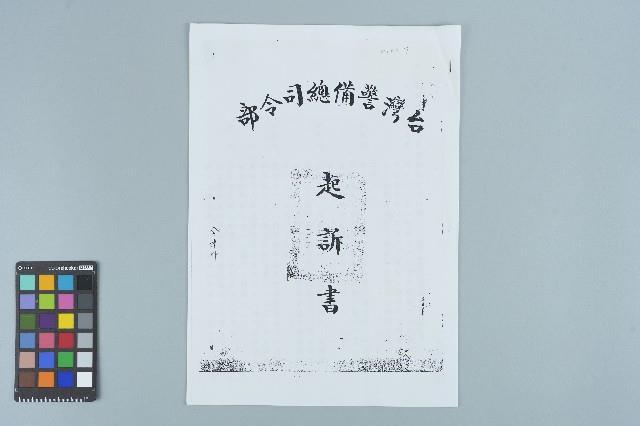 台灣警備總司令部
起訴書
colorchecker